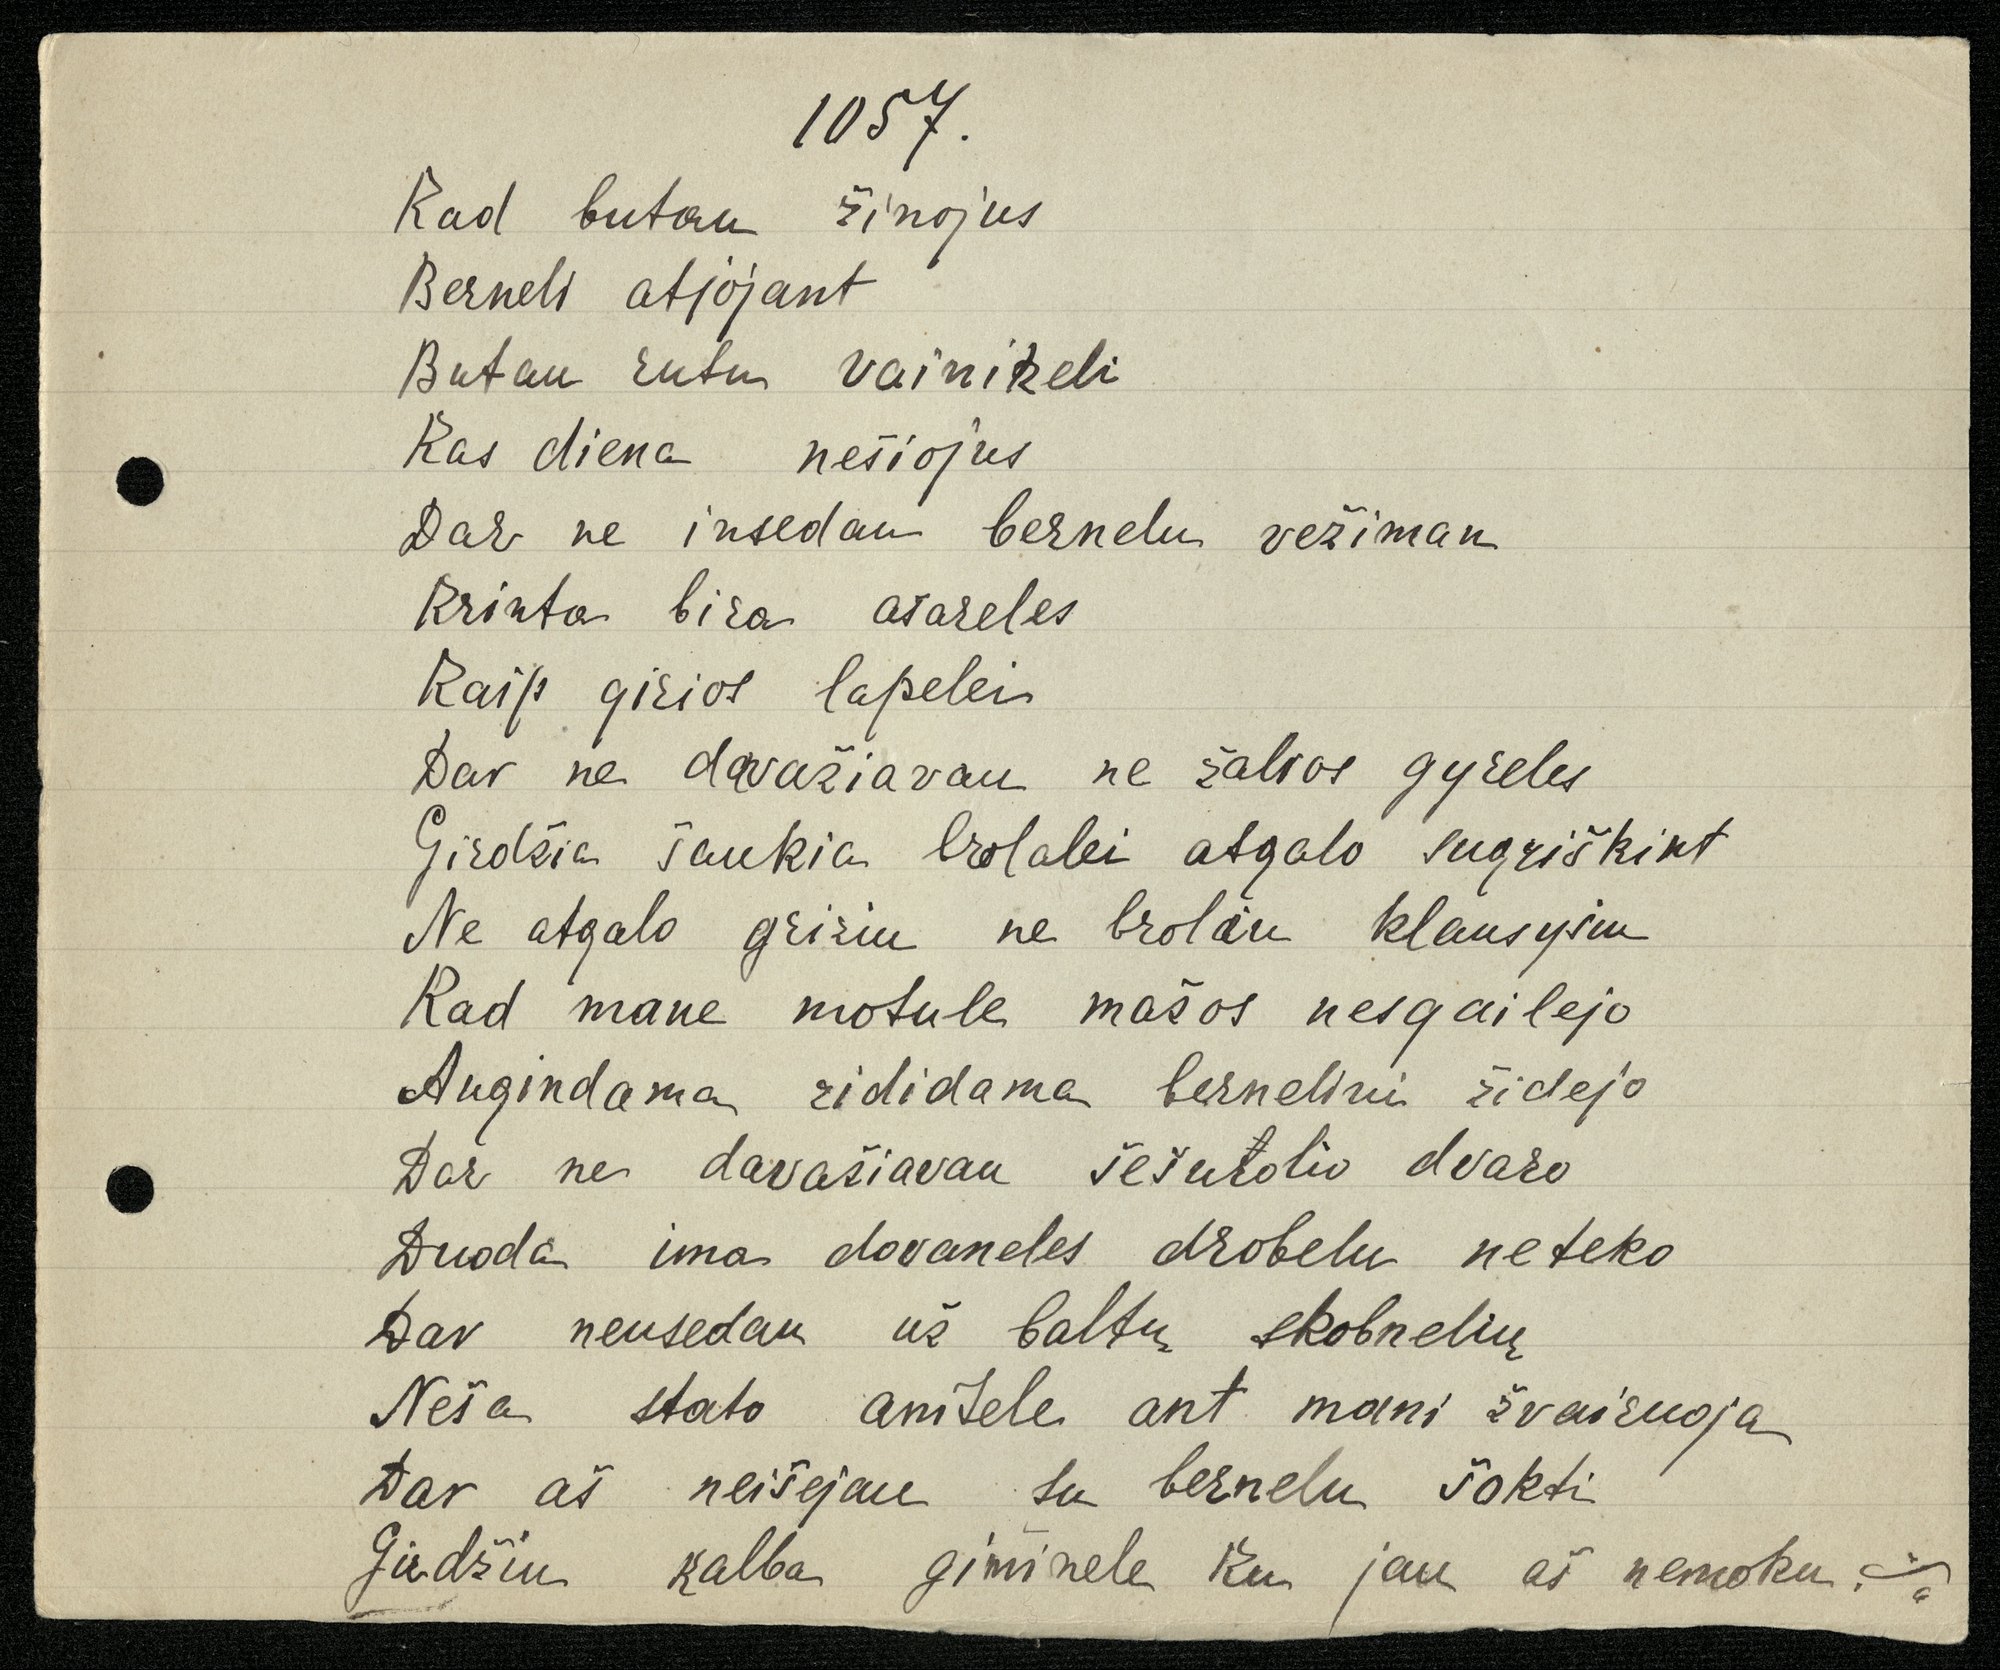 1057.
Kad butau žinojus
Berneli atjojant
Butau rutu vainikeli
Kas diena nešiojus
Dar ne insedau bernelu vežiman
Krinta bira ašareles
Kaip girios lapelei
Dar ne davažiavau ne žalios gyreles
Girdžia šaukia brolalei atgalo sugriškint
Ne atgalo grišiu ne broliu klausysiu
Kad mane motule mažos nesgailejo
Augindama rididama bernelini židejo
Dar ne davažiavau šešurolio dvaro
Duoda ima dovaneles drobelu neteko
Dar neusedau už baltų skobnelių
Neša stato anitele ant mani žvairuoja
Dar aš neišejau su bernelu šokti
Girdžiu kalba giminele ku jau aš nemoku.